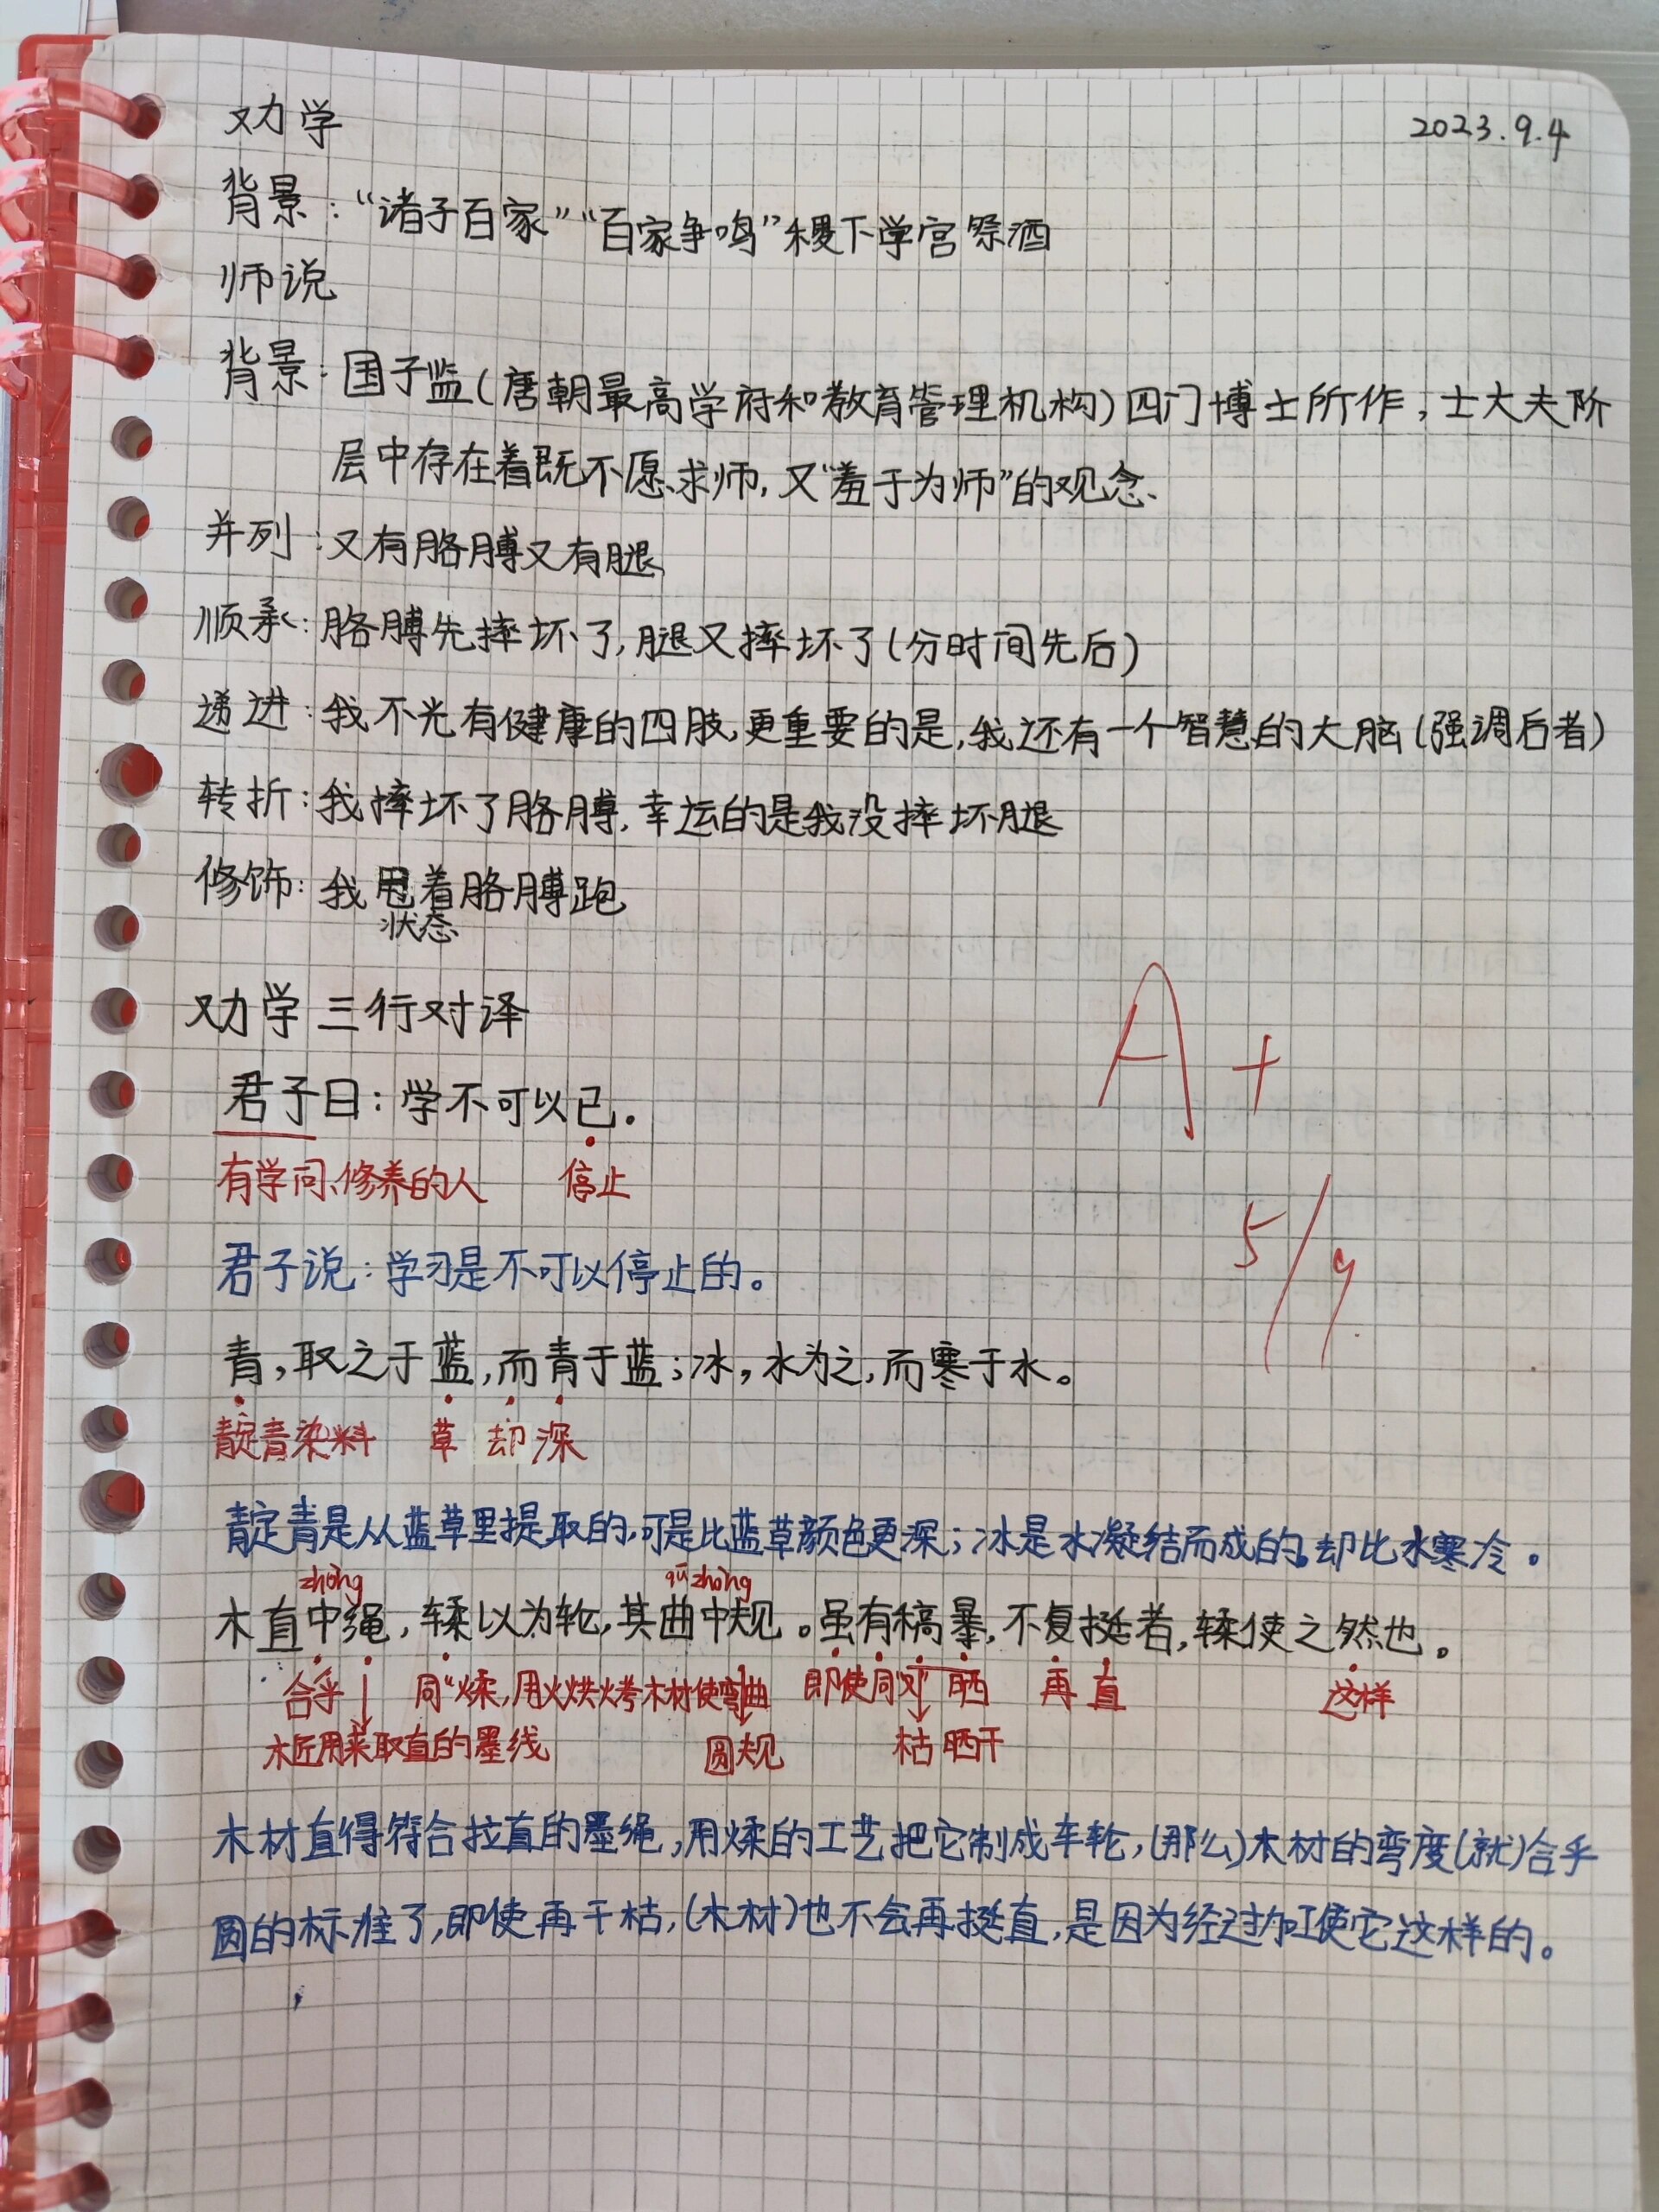 劝学
2023.9.4
背景：“诸子百家”“百家争鸣”稷下学宫祭酒
师说
背景：国子监(唐朝最高学府和教育管理机构)四门博士所作，士大夫阶
层中存在着既不愿求师，又“羞于为师”的观念、
并列：又有胳膊又有腿
顺承：胳膊先摔坏了,腿又摔坏了(分时间先后)
递进：我不光有健康的四肢,更重要的是,我还有一个智慧的大脑(强调后者)
转折：我摔坏了胳膊,幸运的是我没摔坏腿
修饰：我甩着胳膊跑
状态
劝学 三行对译
A+
君子曰：学不可以已。
有学问、修养的人 停止
5/9
君子说：学习是不可以停止的。
青，取之于蓝，而青于蓝；冰，水为之，而寒于水。
靛青染料 草 却 深
靛青是从蓝草里提取的,可是比蓝草颜色更深；冰是水凝结而成的,却比水寒冷。
zhòng qū zhòng
木直中绳，𫐓以为轮，其曲中规。虽有槁暴，不复挺者，𫐓使之然也。
合乎 同“煣,用火烘烤木材使弯曲 即使 同“又” 晒 再 直 这样
木匠用来取直的墨线 圆规 枯 晒干
木材直得符合拉直的墨绳,用煣的工艺把它制成车轮,(那么)木材的弯度(就)合乎
圆的标准了,即使再干枯,(木材)也不会再挺直,是因为经过加工使它这样的。